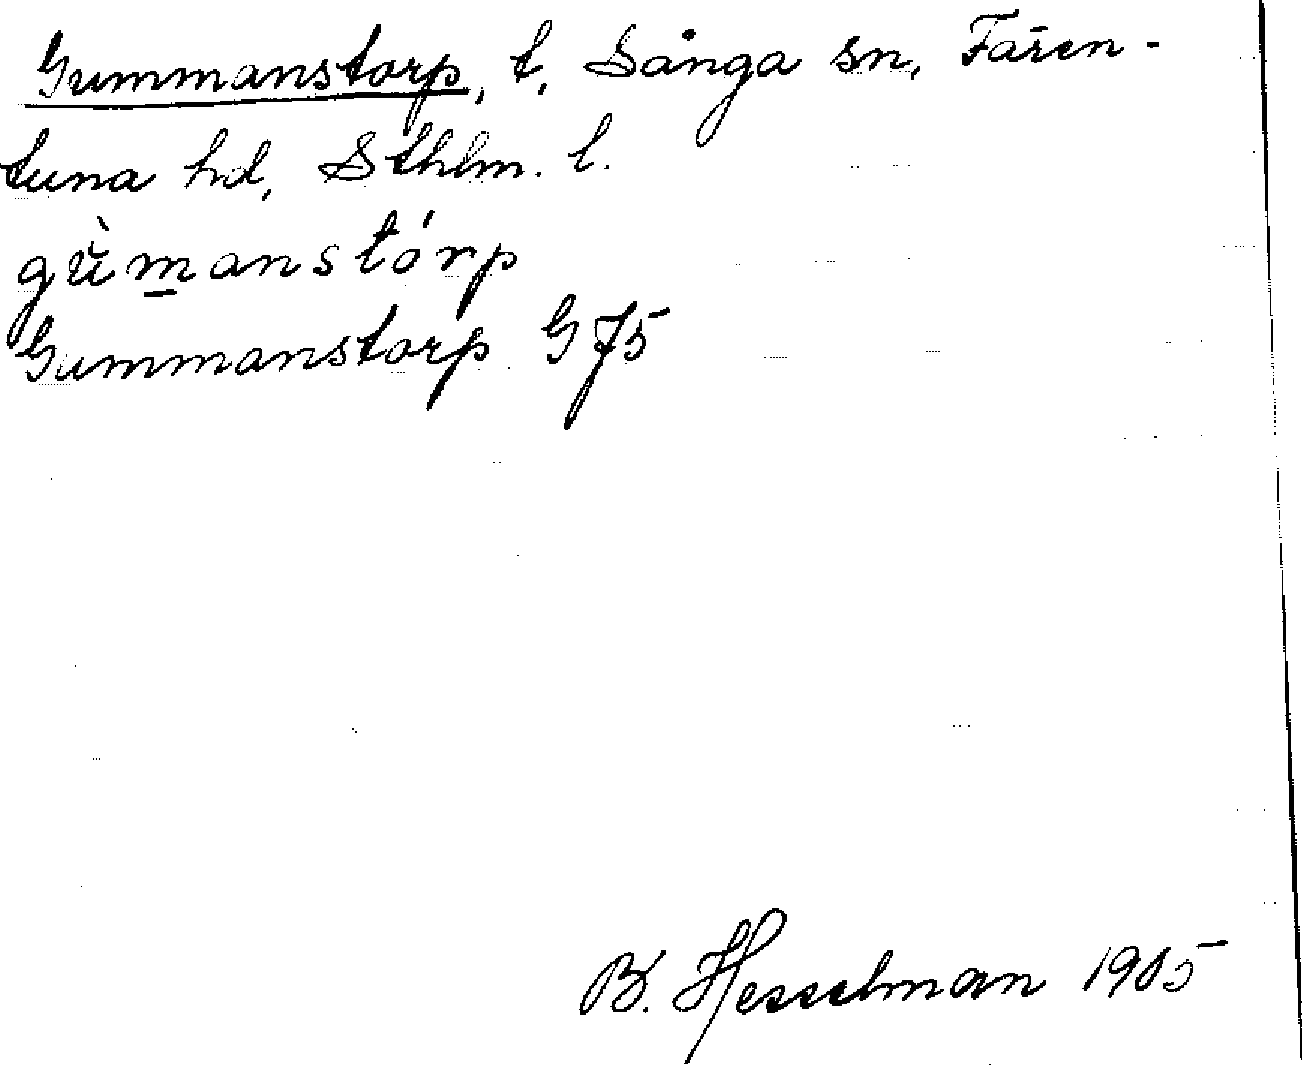 Gummanstorp, t, Sånga sn, Faren-
tuna hd, Sthlm. l.
gùmanstórp
Gummanstorp G J5
B. Hesselman 1905